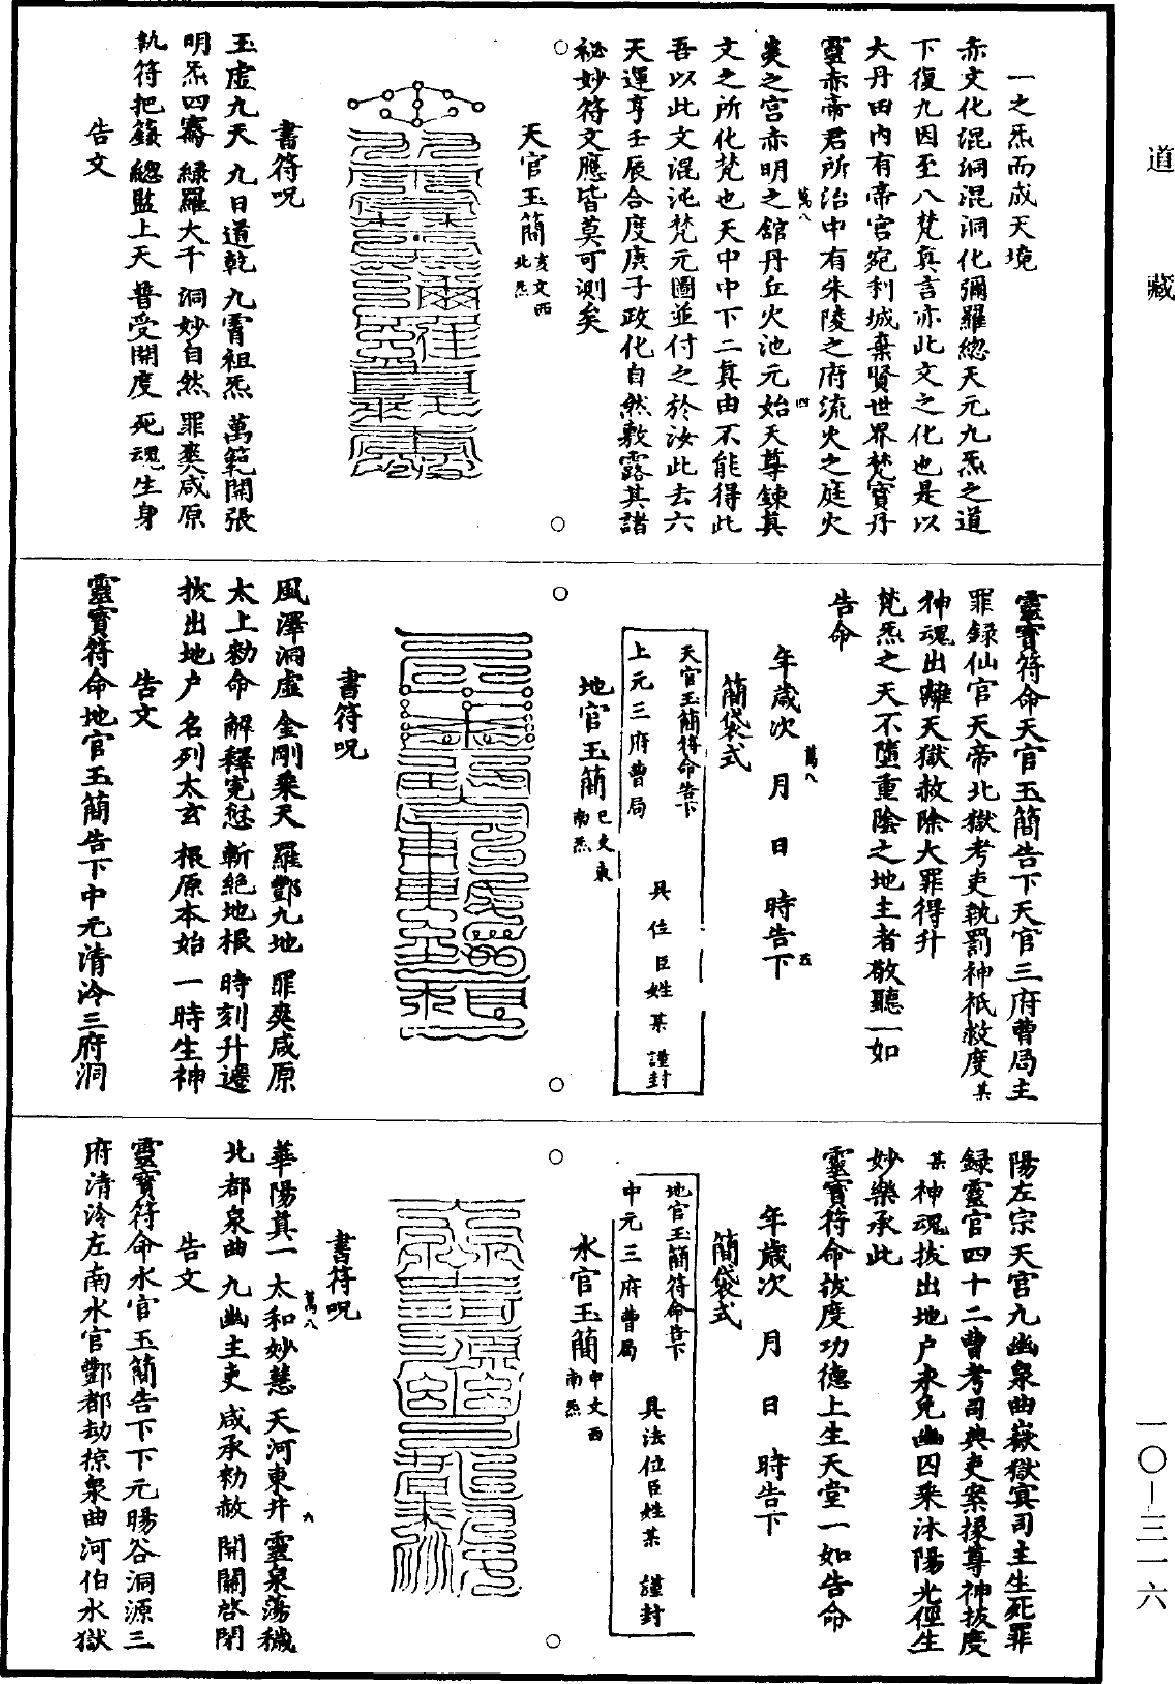 道藏
一之炁而成天境
赤文化混洞混洞化彌羅總天元九炁之道
下復九因至八梵真言亦此文之化也是以
大丹田內有帝宮宛利城棄賢世界梵寶丹
靈赤帝君所治中有朱陵之府流火之庭火
炎之宮赤明之館丹丘火池元始天尊鍊真
萬八
四
文之所化梵也天中中下二真由不能得此
吾以此文混沌梵元圖並付之於汝此去六
天運亨壬辰合度庚子政化自然敷露其諸
祕妙符文應皆莫可測矣
天官玉簡亥文西北炁
書符呪
玉虛九天 九日道乾 九霄祖炁 萬範開張
明炁四騫 綠羅大千 洞妙自然 罪爽咸原
執符把籙 總監上天 普受開度 死魂生身
告文
靈寶符命天官玉簡告下天官三府曹局主
罪錄仙官天帝北獄考吏執罰神祇赦度某
神魂出離天獄赦除大罪得升
梵炁之天不墮重陰之地主者敬聽一如
告命
萬八
五
年歲次 月 日 時告下
簡袋式
天官玉簡符命告下
上元三府曹局
具位臣姓某 謹封
地官玉簡巳文東南炁
書符呪
風澤洞虛 金剛乘天 羅酆九地 罪爽咸原
太上勑命 解釋寃愆 斬絕地根 時刻升遷
拔出地户 名列太玄 根原本始 一時生神
告文
靈寶符命地官玉簡告下中元清泠三府洞
陽左宗天官九幽泉曲嶽獄㝠司主生死罪
録靈官四十二曹考司典吏案掾尊神拔度
某神魂拔出地户永免幽囚乘沐陽光徑生
妙樂承此
靈寶符命拔度功德上生天堂一如告命
年歲次 月 日 時告下
簡袋式
地官玉簡符命告下
中元三府曹局
具法位臣姓某 謹封
水官玉簡申文西南炁
書符呪
華陽真一 太和妙慧 天河東井 靈泉蕩穢
萬八
六
北都泉曲 九幽主吏 咸承勑赦 開關啓閉
告文
靈寶符命水官玉簡告下下元暘谷洞源三
府清泠左南水官酆都劫掠泉曲河伯水獄
一〇-三一六